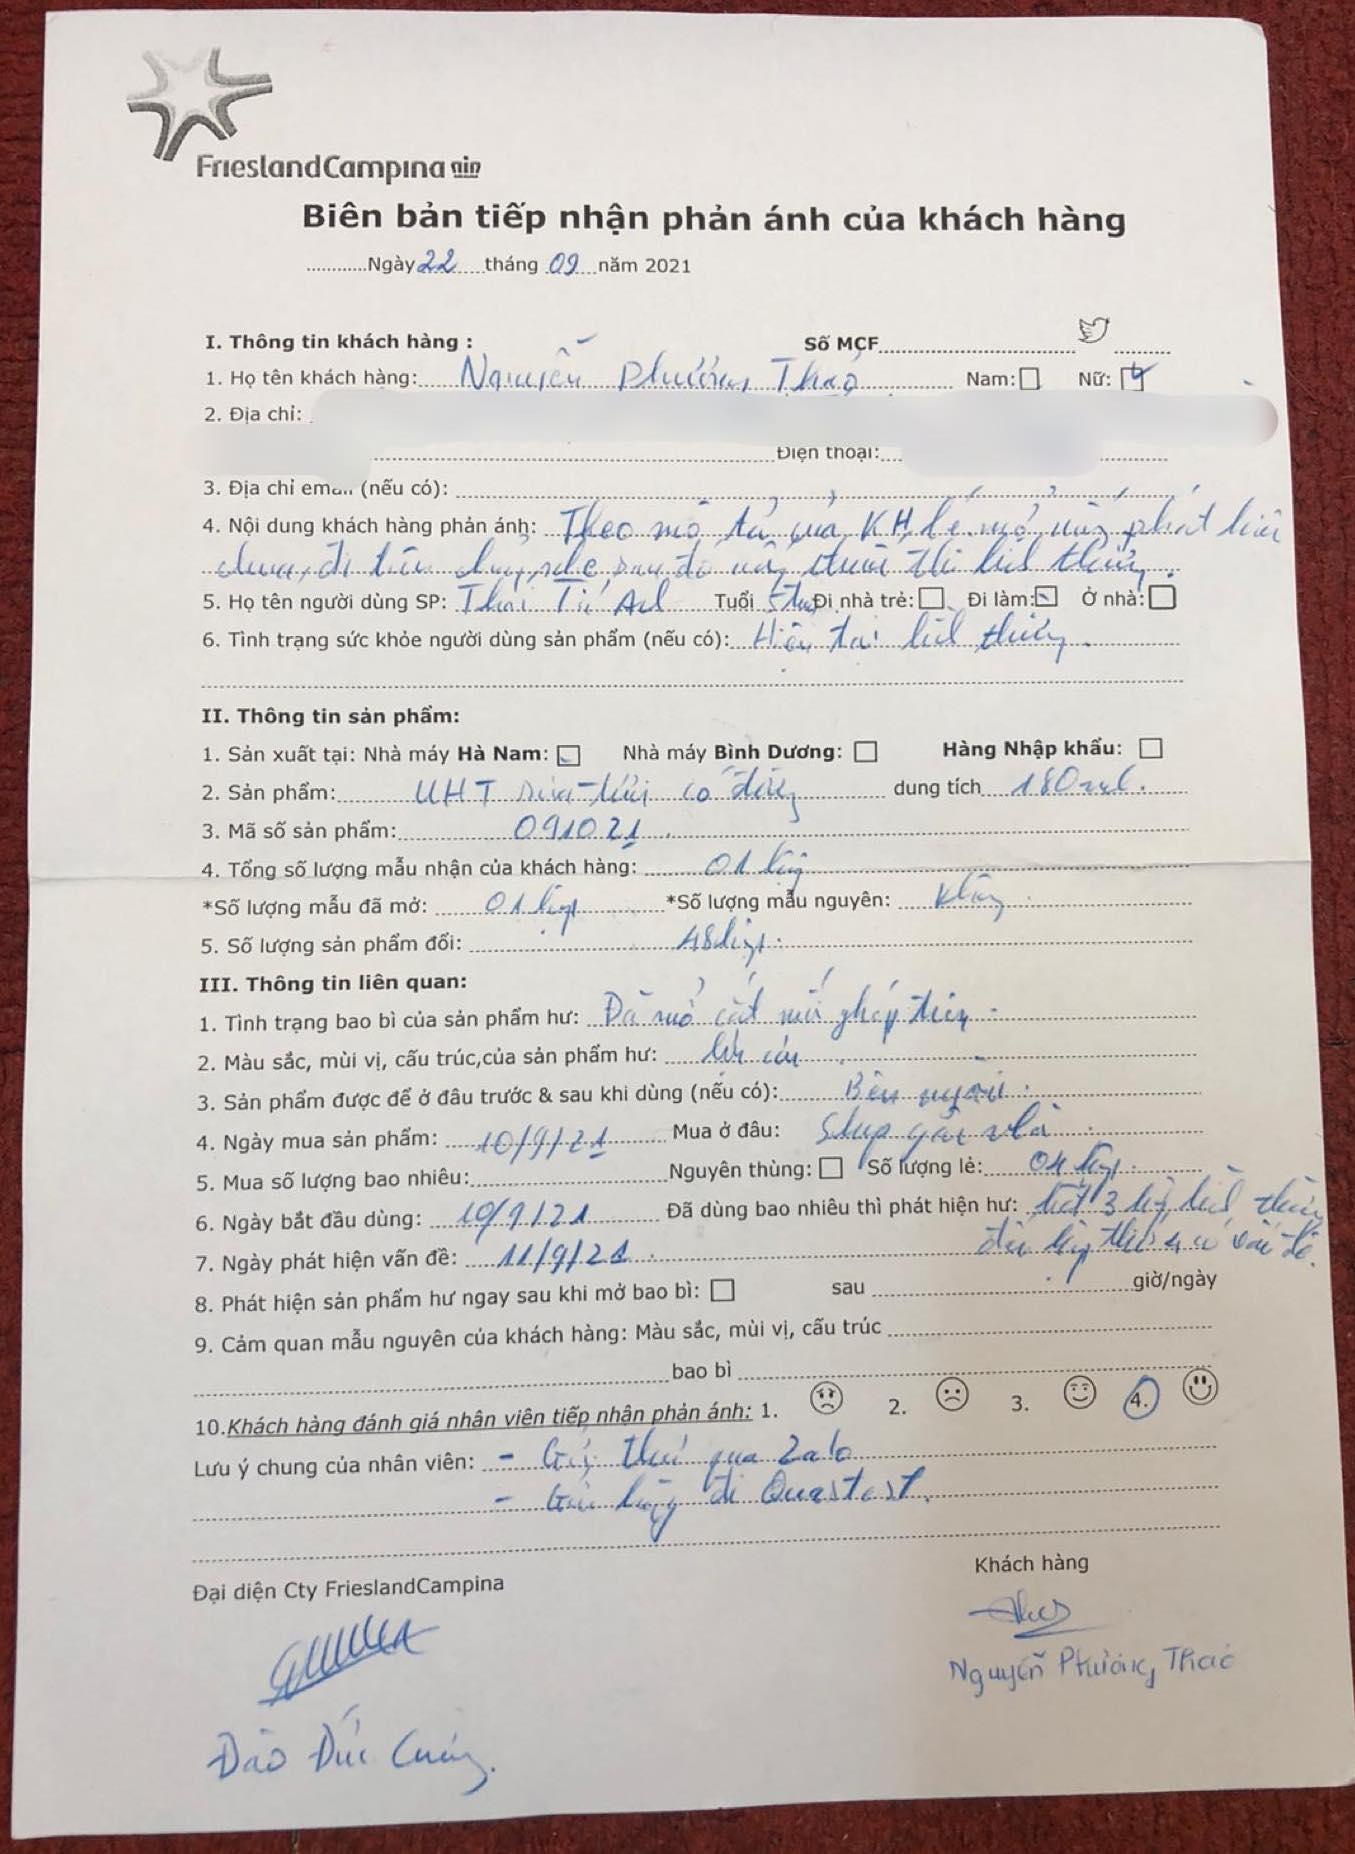 FrieslandCampina
Biên bản tiếp nhận phản ánh của khách hàng
............Ngày 22 tháng 09 năm 2021
I. Thông tin khách hàng : Số MCF
1. Họ tên khách hàng: Nguyễn Phương Thảo Nam: Nữ:
2. Địa chỉ:
Điện thoại:
3. Địa chỉ email (nếu có):
4. Nội dung khách hàng phản ánh: Theo mô tả của KH, bé mở uống phát hiện
chua, đi tiêu chảy nhẹ, sau đó uống thuốc thì bình thường.
5. Họ tên người dùng SP: Thái Tú Tuổi Đi nhà trẻ: Đi làm: Ở nhà:
6. Tình trạng sức khỏe người dùng sản phẩm (nếu có): Hiện tại bình thường.
II. Thông tin sản phẩm:
1. Sản xuất tại: Nhà máy Hà Nam: Nhà máy Bình Dương: Hàng Nhập khẩu:
2. Sản phẩm: UHT sữa tươi có đường dung tích 180ml.
3. Mã số sản phẩm: 091021.
4. Tổng số lượng mẫu nhận của khách hàng: 01 hộp
*Số lượng mẫu đã mở: 01 hộp *Số lượng mẫu nguyên: Không
5. Số lượng sản phẩm đổi: 48 hộp.
III. Thông tin liên quan:
1. Tình trạng bao bì của sản phẩm hư: Đã mở cắt mối ghép trên.
2. Màu sắc, mùi vị, cấu trúc,của sản phẩm hư:
3. Sản phẩm được để ở đâu trước & sau khi dùng (nếu có): Bên ngoài.
4. Ngày mua sản phẩm: 10/9/21 Mua ở đâu: Shop gần nhà
5. Mua số lượng bao nhiêu: Nguyên thùng: Số lượng lẻ: 04 hộp.
6. Ngày bắt đầu dùng: 10/9/21 Đã dùng bao nhiêu thì phát hiện hư: hết 3 hộp bình thường
đến hộp thứ 4 có vấn đề.
7. Ngày phát hiện vấn đề: 11/9/21.
8. Phát hiện sản phẩm hư ngay sau khi mở bao bì: sau giờ/ngày
9. Cảm quan mẫu nguyên của khách hàng: Màu sắc, mùi vị, cấu trúc
bao bì
10.Khách hàng đánh giá nhân viên tiếp nhận phản ánh: 1. 2. 3. 4.
Lưu ý chung của nhân viên: - Gửi thư qua Zalo
- Gửi hàng đi Quastest.
Đại diện Cty FrieslandCampina
Khách hàng
Nguyễn Phương Thảo
Đào Đức Cường.